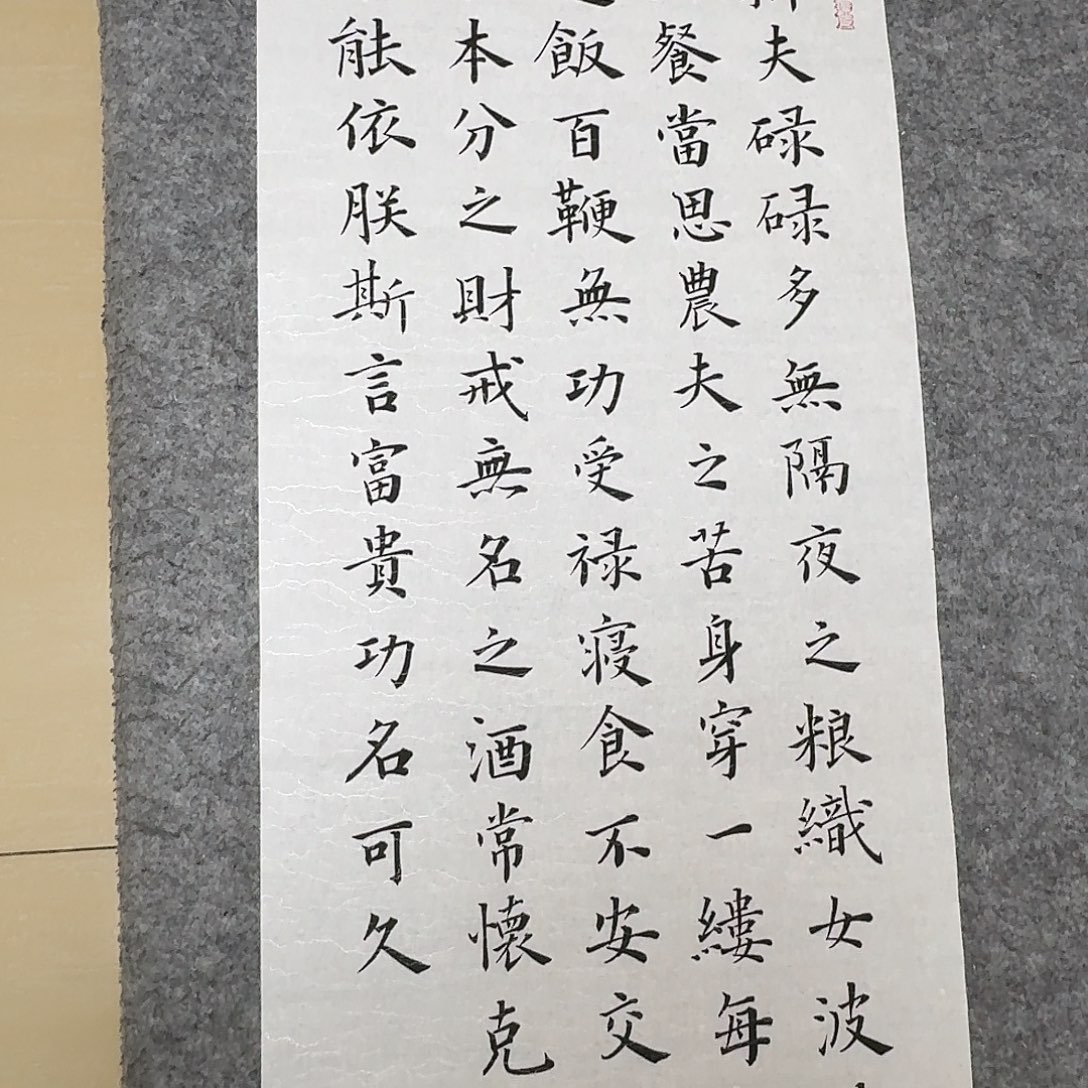 夫碌碌多無隔夜之粮織女波
餐當思農夫之苦身穿一縷每
飯百鞭無功受禄寝食不安交
本分之財戒無名之酒常懷克
能依朕斯言富貴功名可久